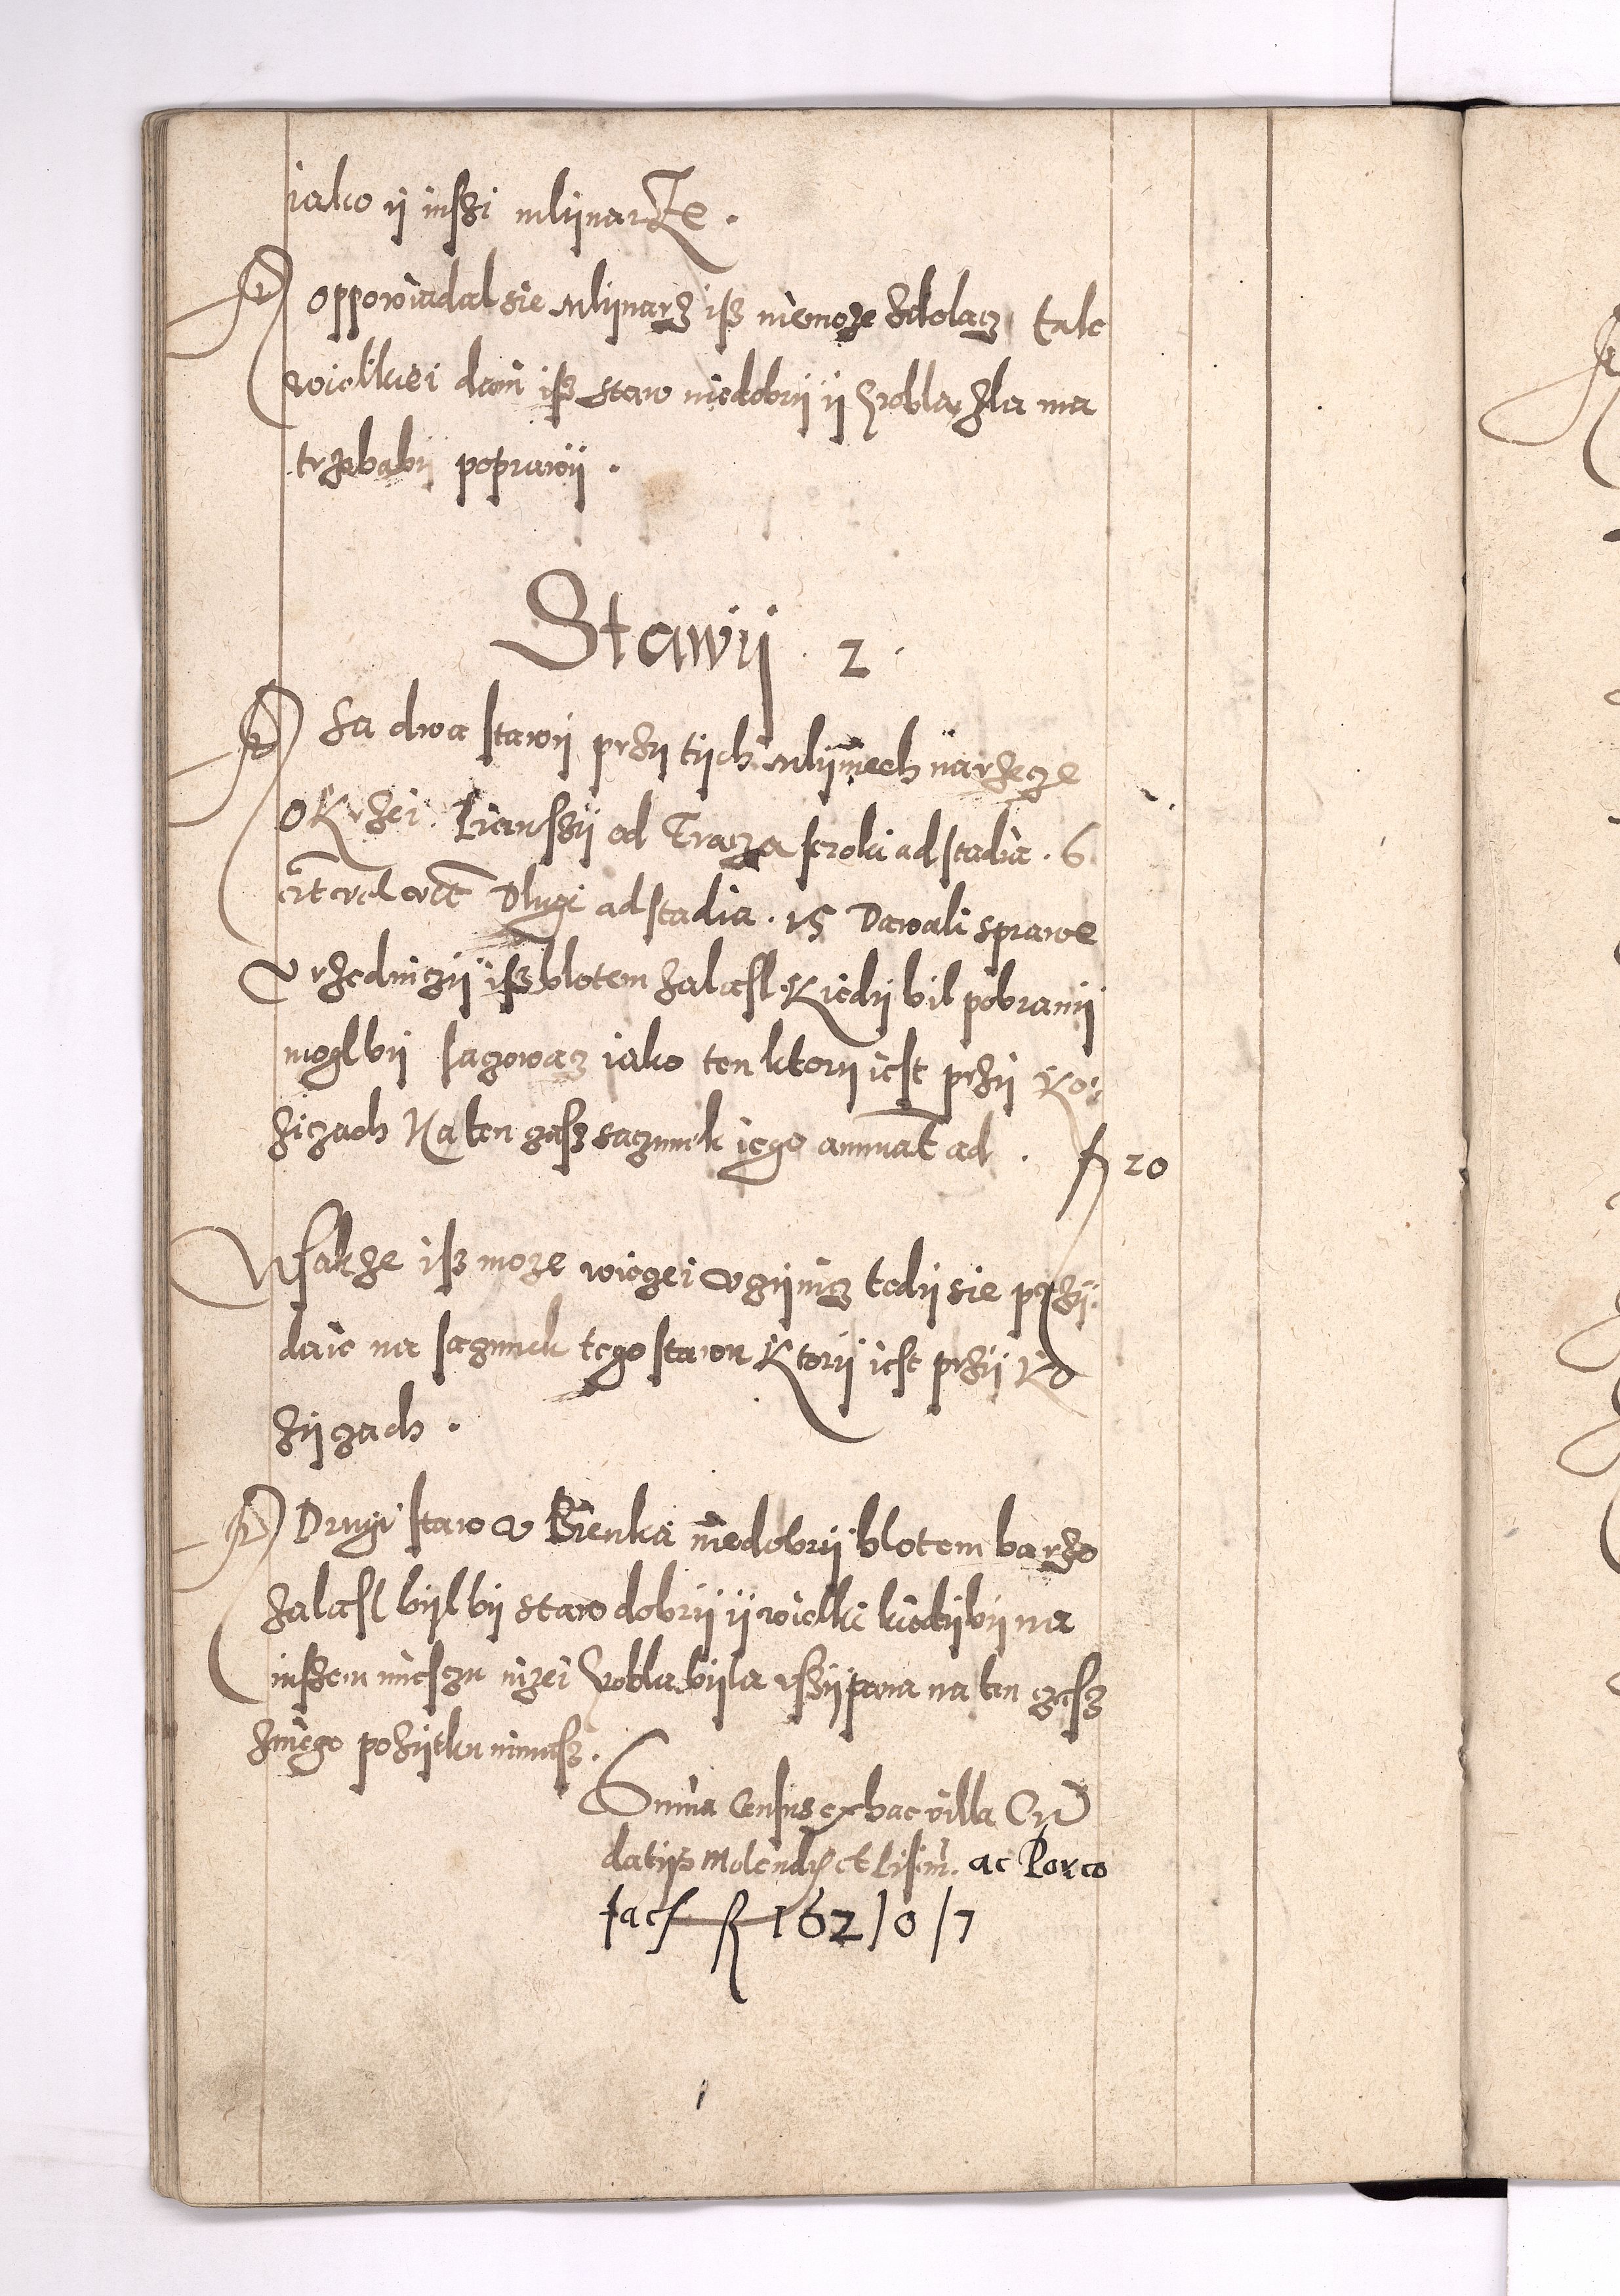 iako ÿ inszi mlÿnarze .
Oppowiadal sie mlÿnarz isz niemoze zdolacz tak
wielkiei dani isz staw niedobrÿ ÿ Grobla zla ma
trzebabÿ poprawÿ .
Stawÿ . 2 .
Sa dwa stawÿ przÿ tÿch mlÿniech na rzecze
Okrzei . Pierwszÿ od Tracza seroki ad stadia . 6
Dlugi ad stadia . 15 Dawali sprawe
Vrzedniczÿ isz blotem zalasl Kiedÿ bil pobranÿ
moglbÿ sacowacz iako ten ktorÿ iest przÿ Ko:
zizach Na ten czasz sacunek iego annuat ad . fl 20
Wsakze isz moze wiecei vczÿnicz tedÿ sie przÿ:
daie na sacunek tego stawu Ktorÿ iest przÿ Ko
zÿzach .
Drugi staw v Bienka niedobrÿ blotem barzo
zalasl bÿl bÿ staw dobrÿ ÿ wielki kiedÿ bÿ na
inszem miesczu nizei Grobla bÿla vsÿpana na ten czasz
zniego pozÿtku nimasz .
Suma Census ex hac villa Cum
datijs Molendis et piscin. ac Porco
facit fl 162/0/7